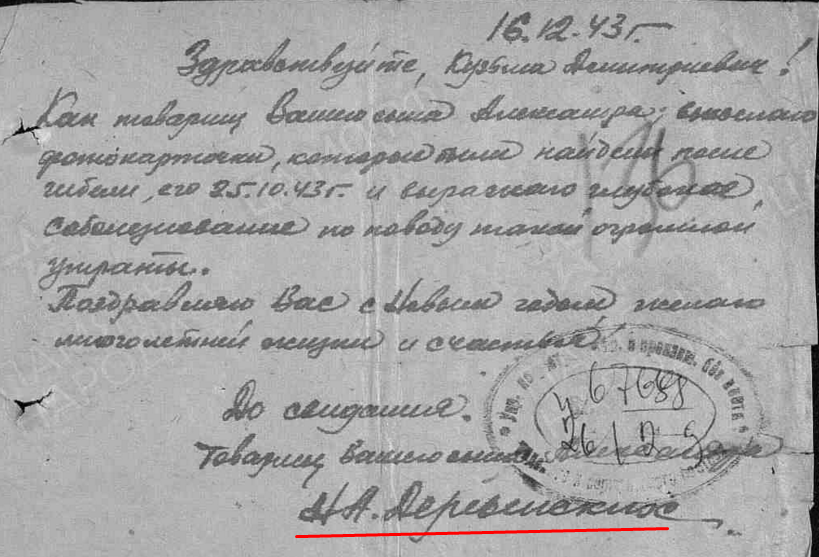 16.12.43 г.
Здравствуйте, Кузьма Дмитриевич!
Как товарищ Вашего сына Александра, высылаю
фотокарточки, которые были найдены после
гибели его 25.10.43 г. и выражаю глубокое
соболезнование по поводу такой огромной
утраты.
Поздравляю Вас с Новым годом желаю
многолетней жизни и счастья!
До свидания.
Товарищ Вашего сына Александра